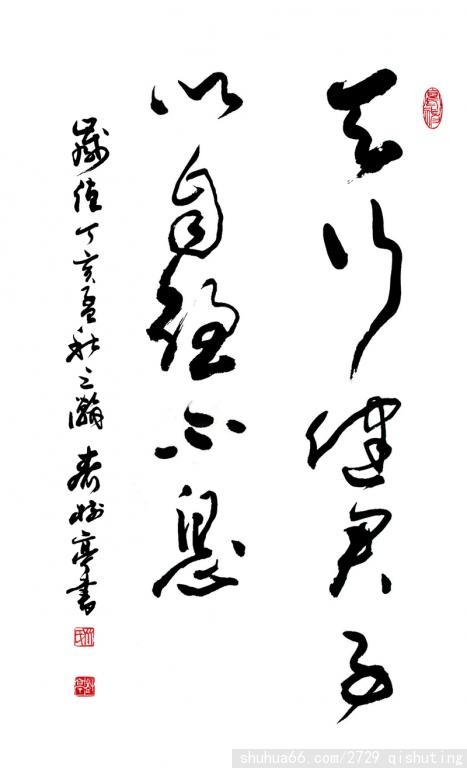 天行健君子
以自强不息
歲值丁亥孟秋之瀚 树亭書
shuhua66.com/2729 qishuting